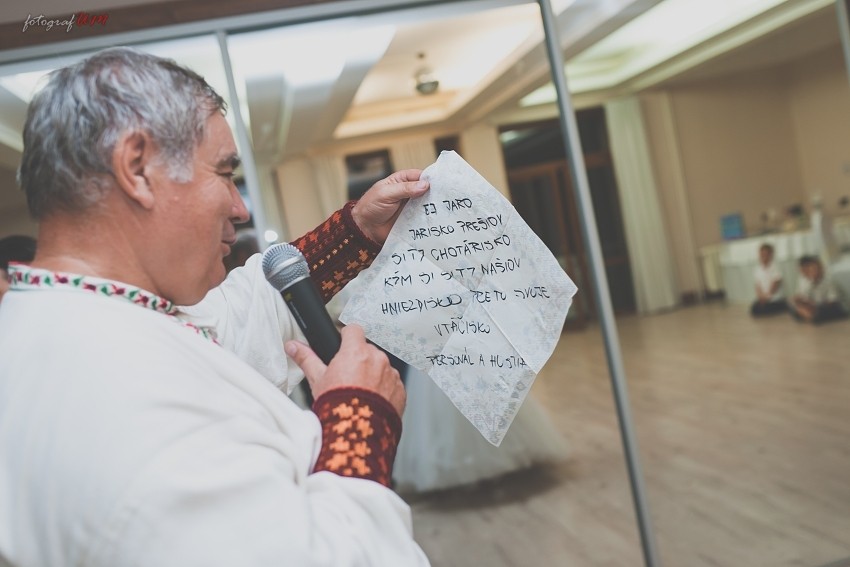 fotografTAM
EJ JARO
JARISKO PREŠIOV
SI TY CHOTÁRISKO
KÝM SI SI TY NAŠIOV
HNIEZDISKO PRE TO SVOJE
VTÁČISKO
PERSONÁL A HOSTIA